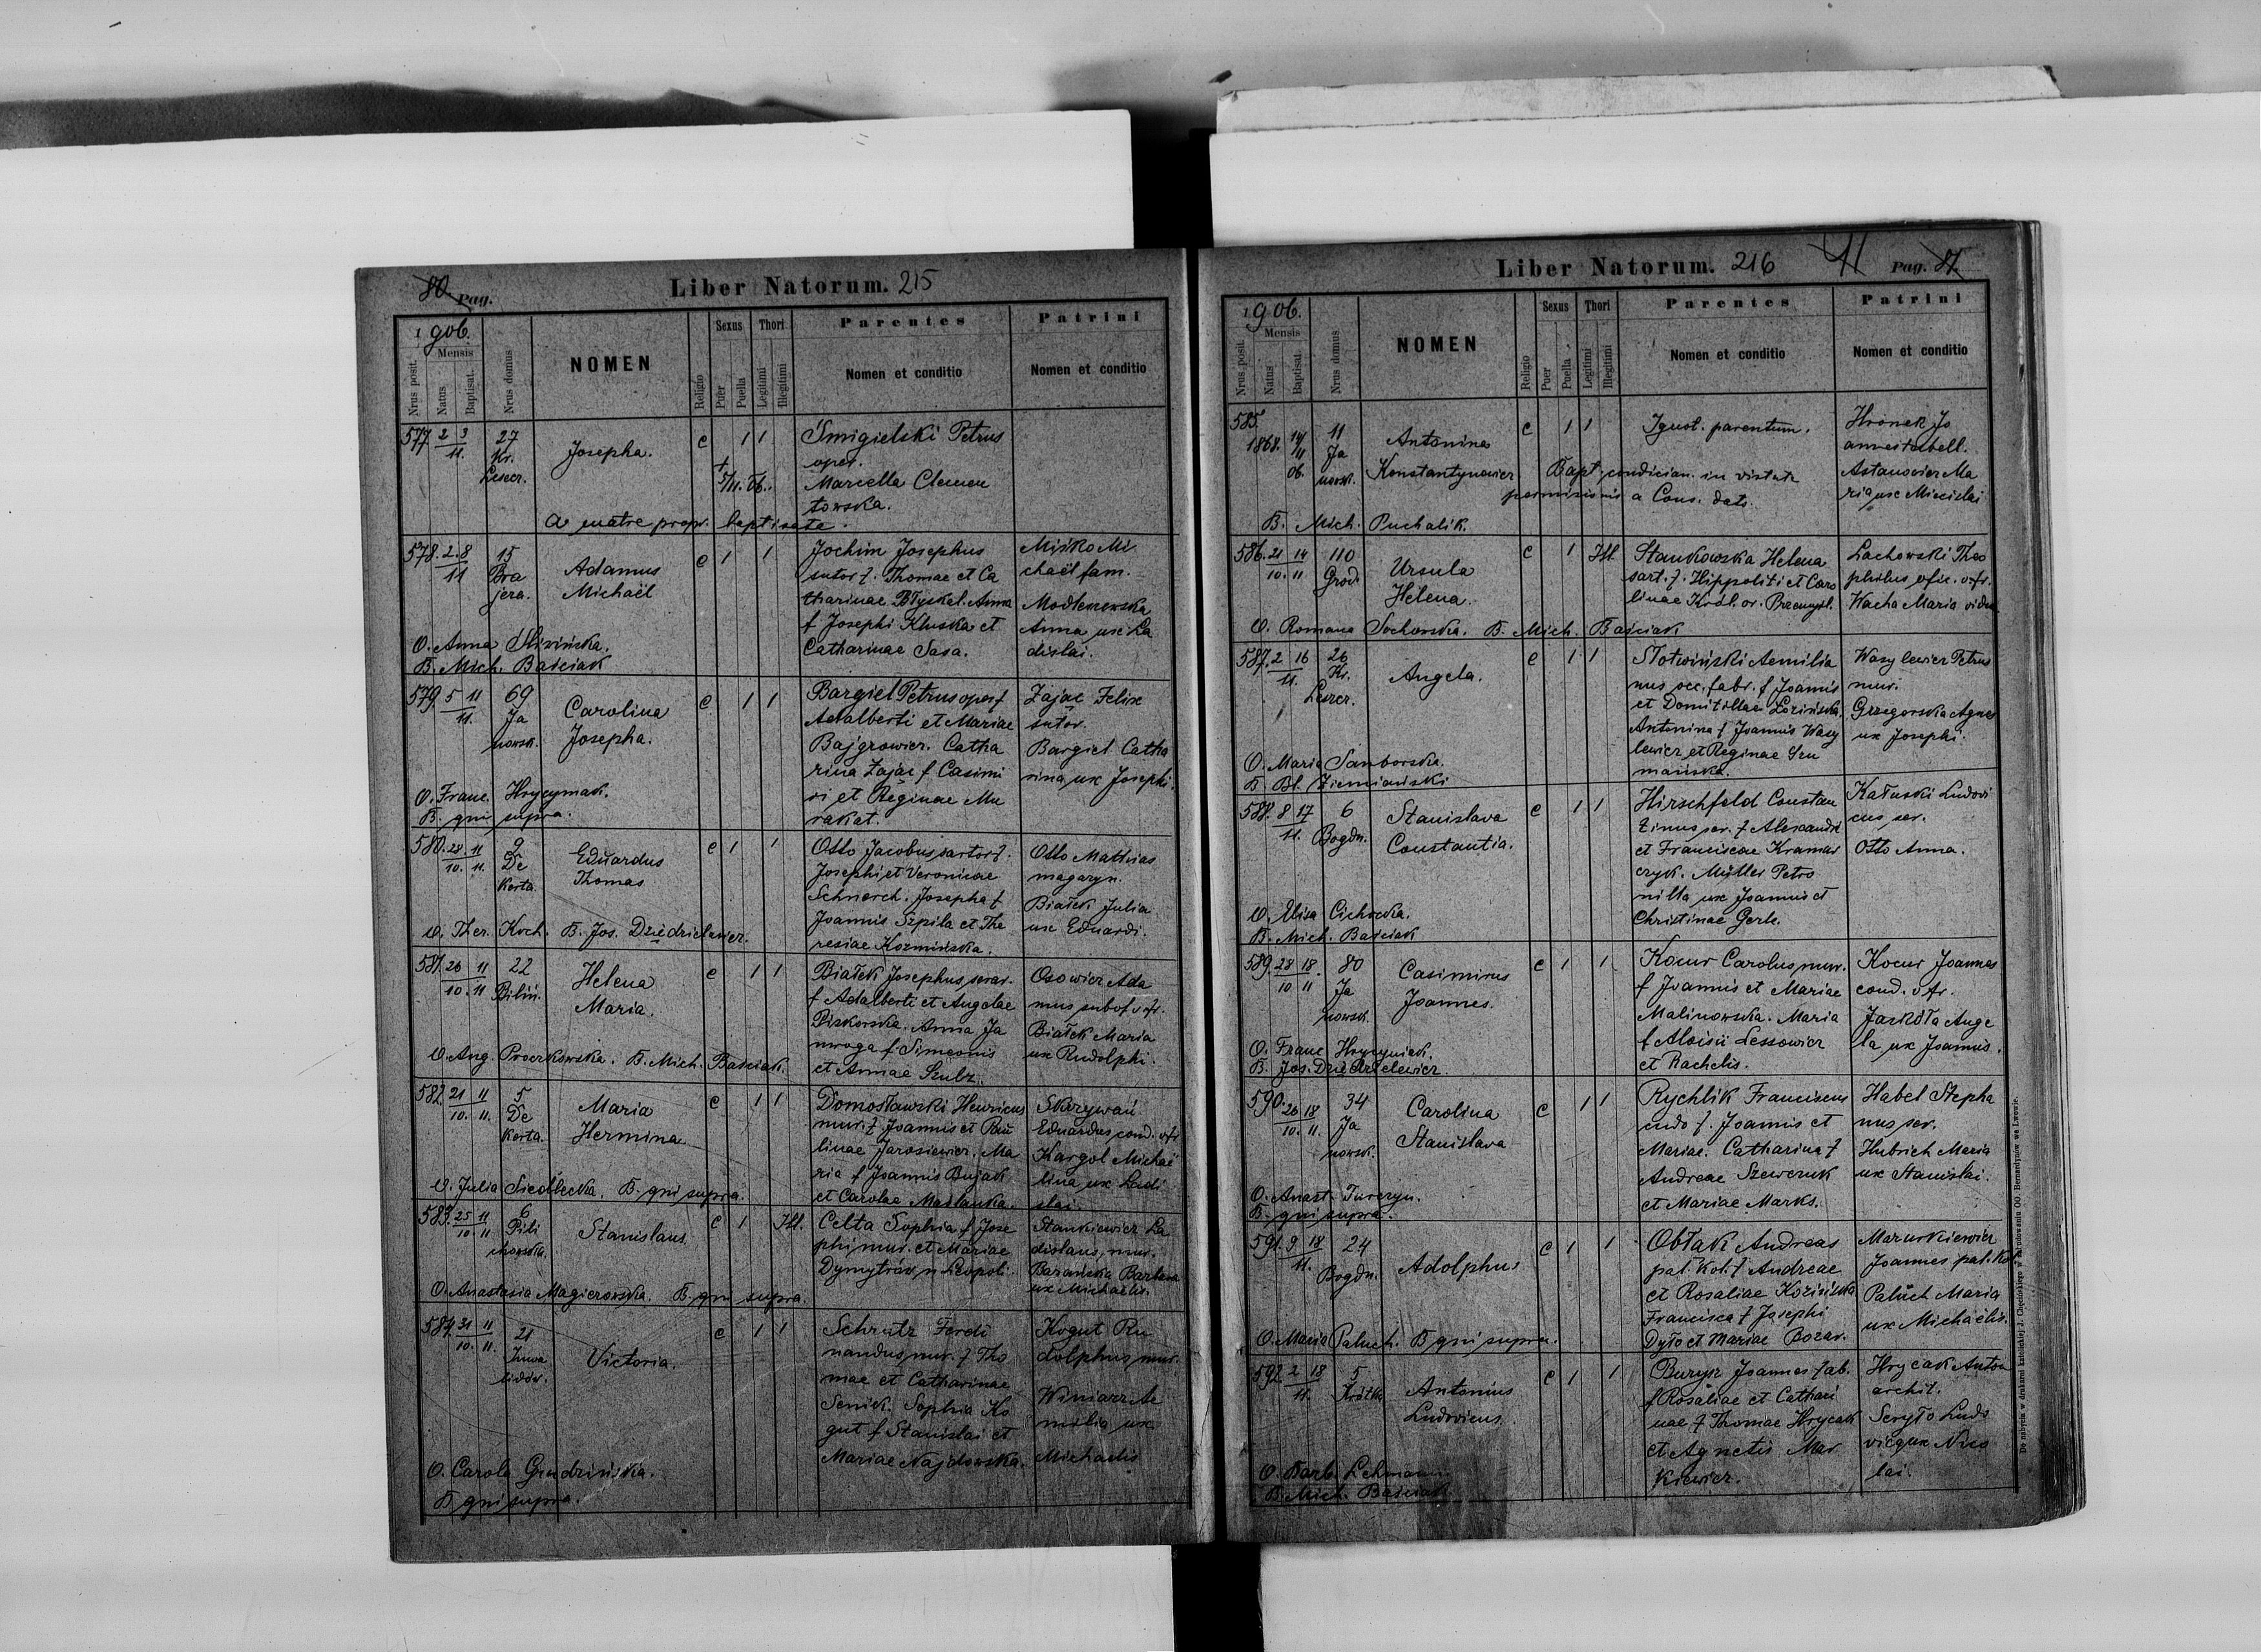 80. Pag.
Liber Natorum. 215
1906.
Mensis
Nrus posit.
Natus
Baptisat.
Nrus domus
NOMEN
Religio
Sexus
Puer
Puella
Thori
Legitimi
Illegitimi
Parentes
Nomen et conditio
Patrini
Nomen et conditio
577. 2 3 11. 27 Kr. Leszcz.
Josepha.
c 1 1
Śmigielski Petrus
oper.
Marcella Clemen
towska.
+ 5/11. 06.
a matre propr. baptisata.
578. 2. 8 11 15 Bra jera.
Adamus
Michaël
c 1 1
Jochim Josephus
sutor f. Thomae et Ca
tharinae Błyskal. Anna
f Josephi Kluska et
Catharinae Sasa.
Miśko Mi
chaël fam.
Modlenewska
Anna ux La
dislai.
O. Anna Śliwińska.
B. Mich. Baściak
579. 5 11 11. 69 Ja nowsk.
Carolina
Josepha.
c 1 1
Bargiel Petrus oper f
Adalberti et Mariae
Bajgrowicz. Catha
rina Zając f Casimi
ri et Reginae Mu
rakat.
Zając Felix
sutor.
Bargiel Catha
rina ux Josephi.
O. Franc. Hrycyniak.
B. qui supra.
580. 28. 11 10. 11. 9 De kerta.
Eduardus
Thomas
c 1 1
Otto Jacobus sartor f.
Josephi et Veronicae
Schnerch. Josepha f
Joannis Szpila et The
resiae Kozmińska.
Otto Mathias
magazyn.
Białek Julia
ux Eduardi.
O. Ther. Koch. B. Jos. Dziedzielewicz.
581. 26 11 10. 11 22 Biliń.
Helena
Maria.
c 1 1
Białek Josephus serar.
f Adalberti et Angelae
Piskorska. Anna Ja
nwoga f. Simeonis
et Annae Szulz.
Osowicz Ada
mus subof. v. fr.
Białek Maria
ux Rudolphi.
O. Ang. Proczkowska. B. Mich. Baściak.
582. 21 11 10. 11. 5 De kerta.
Maria
Hermina.
c 1 1
Domosławski Henricus
mur. f. Joannis et Pau
linae Jarosiewicz. Ma
ria f Joannis Bujak
et Carolae Maślanka.
Skrzywań
Eduardus cond. v. fr
Kargol Michaë
lina ux Ladi
slai.
O. Julia Siedlecka. B. qui supra.
583. 25 11 10. 11 6 Pili chowska.
Stanislaus.
c 1 Ill.
Celta Sophia f Jose
phi mur. et Mariae
Dymytrów n Leopoli.
Stankiewicz La
dislaus, mur.
Barańska Barbara
ux Michaelis.
O. Anastasia Magierowska. B. qui supra.
584. 31 11 10. 11. 21 Inwa lidów.
Victoria.
c 1 1
Schrutz Ferdi
nandus mur. f Tho
mae et Catharinae
Senik. Sophia Ko
gut f Stanislai et
Mariae Najdowska.
Kogut Ru
dolphus mur.
Winiarz Ae
milia ux
Michaelis
O. Carola Grudzińska.
B qui supra.
Liber Natorum. 216
41 Pag. 81.
1906.
Mensis
Nrus posit.
Natus
Baptisat.
Nrus domus
NOMEN
Religio
Sexus
Puer
Puella
Thori
Legitimi
Illegitimi
Parentes
Nomen et conditio
Patrini
Nomen et conditio
585. 1868. 14/11 06. 11 Ja nowsk.
Antonina
Konstantynowicz
c 1 1
Ignot. parentum.
Bapt. condician. in virtute
permissionis a Cons. dato.
Hronek Jo
annes tabell.
Astanowicz Ma
ria ux Miecislai
B. Mich. Puchalik.
586. 21 14 10. 11 110 Grod.
Ursula
Helena.
c 1 Ill.
Stankowska Helena
sart. f. Hippoliti et Caro
linae Król. or. Przemyśl.
Lachowski Theo
philus ofic. v. fr.
Wacha Maria vidua
O. Romana Sochowska. B. Mich. Baściak
587. 2 16 11. 26 Kr. Leszcz.
Angela.
c 1 1
Słotwiński Aemilia
nus occ. fabr. f Joannis
et Domitillae Łozińska.
Antonina f Joannis Wasy
lewicz et Reginae Szu
mańska.
Wasylewicz Petrus
mur.
Grzegorska Agnes
ux Josephi.
O. Maria Samborska.
B. Bl. Ziemiański
588. 8 17 11. 6 Bogdn.
Stanislava
Constantia.
c 1 1
Hirschfeld Constan
tinus ser. f Alexandri
et Franciscae Kramar
czyk. Müller Petro
nilla ux Joannis et
Christinae Gerle.
Kałuski Ludovi
cus, ser.
Otto Anna.
O. Elisa Cichocka.
B. Mich. Baściak
589. 28 18. 10 11 80 Ja nowsk.
Casimirus
Joannes.
c 1 1
Kocur Carolus mur.
f Joannis et Mariae
Malinowska. Maria
f Aloisii Lessowicz
et Rachelis.
Kocur Joannes
cond. v. fr.
Jaskóła Ange
la ux Joannis.
O. Franc Hrycyniak.
B. Jos. Dziedzielewicz.
590. 26 18 10. 11. 34 Ja nowsk.
Carolina
Stanislava
c 1 1
Rychlik Franciscus
cudo f. Joannis et
Mariae. Catharina f
Andreae Szewczuk
et Mariae Marks.
Habel Stepha
nus ser.
Hubrich Maria
ux Stanislai.
O. Anast. Turczyn.
B. qui supra.
591. 9 18 11. 24 Bogdn.
Adolphus
c 1 1
Obłak Andreas
pal. kol. f Andreae
et Rosaliae Kozińska
Francisca f Josephi
Dyło et Mariae Bozar.
Mazurkiewicz
Joannes pal. kol.
Paluch Maria
ux Michaëlis.
O. Maria Paluch. B qui supra.
592. 2 18 11. 5 Krótka
Antonius
Ludovicus.
c 1 1
Burysz Joannes fab.
f Rosaliae et Cathari
nae f Thomae Hrycak
et Agnetis Mar
kiewicz.
Hrycak Anton
archit.
Scryło Ludo
vica ux Nico
lai.
O. Barb. Lehmann.
B. Mich. Baściak
Do nabycia w drukarni katolickiej J. Chęcińskiego w zabudowaniu OO. Bernardynów we Lwowie.